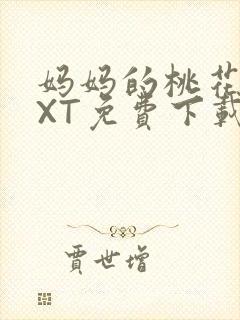 妈妈的桃花
XT免费下载
贾世增